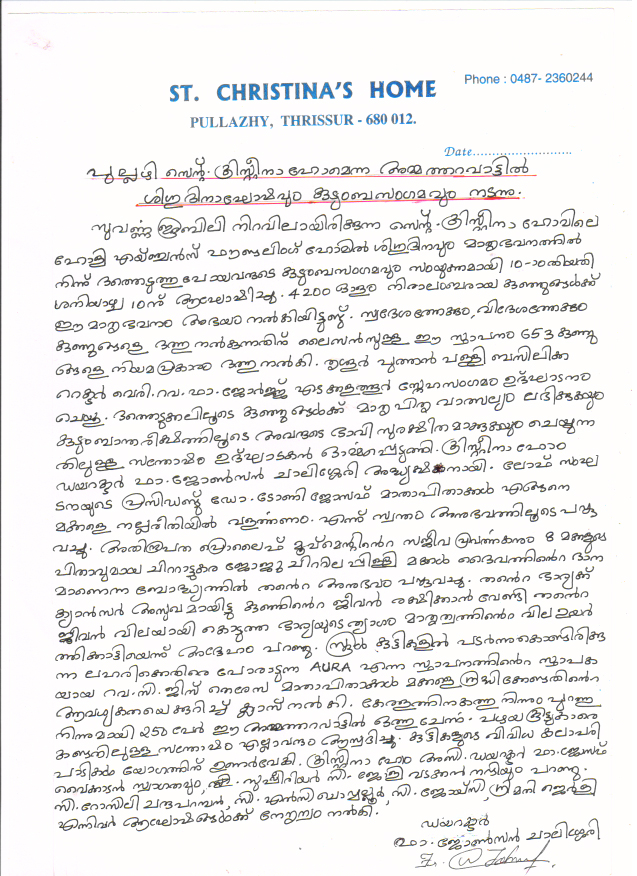 ST. CHRISTINA'S HOME
Phone : 0487- 2360244
PULLAZHY, THRISSUR - 680 012.
Date...........................
പുല്ലഴി സെന്റ്. ക്രിസ്റ്റീനാ ഹോമെന്ന അമ്മത്തറവാട്ടിൽ
ശിശുദിനാഘോഷവും കുടുംബസംഗമവും നടന്നു.
സുവർണ്ണ ജൂബിലി നിറവിലായിരിക്കുന്ന സെന്റ്. ക്രിസ്റ്റീനാ ഹോമിലെ
ഹോളി എയ്ഞ്ചൽസ് ഫൗണ്ടലിംഗ് ഹോമിൽ ശിശുദിനവും മാതൃഭവനത്തിൽ
നിന്ന് ദത്തെടുത്തു പോയവരുടെ കുടുംബസംഗമവും സംയുക്തമായി 10-ാംതിയതി
ശനിയാഴ്ച 10ന് ആഘോഷിച്ചു. 4200 ഓളം നിരാലംബരായ കുഞ്ഞുങ്ങൾക്ക്
ഈ മാതൃഭവനം അഭയം നൽകിയിട്ടുണ്ട്. സ്വദേശത്തേക്കും, വിദേശത്തേക്കും
കുഞ്ഞുങ്ങളെ ദത്തു നൽകുന്നതിന് ലൈസൻസുള്ള ഈ സ്ഥാപനം 653 കുഞ്ഞു
ങ്ങളെ നിയമപ്രകാരം ദത്തു നൽകി. തൃശൂർ പുത്തൻ പള്ളി ബസിലിക്ക
റെക്ടർ വെരി. റവ. ഫാ. ജോർജ്ജ് എടക്കളത്തൂർ സ്നേഹസംഗമം ഉദ്ഘാടനം
ചെയ്തു. ദത്തെടുക്കലിലൂടെ കുഞ്ഞുങ്ങൾക്ക് മാതൃ പിതൃ വാത്സല്യം ലഭിക്കുകയും
കുടുംബാന്തരീക്ഷത്തിലൂടെ അവരുടെ ഭാവി സുരക്ഷിതമാക്കുകയും ചെയ്യുന്ന
തിലുള്ള സന്തോഷം ഉദ്ഘാടകൻ ഓർമ്മപ്പെടുത്തി. ക്രിസ്റ്റീനാ ഹോം
ഡയറക്ടർ ഫാ. ജോൺസൻ ചാലിശ്ശേരി അദ്ധ്യക്ഷനായി. ലോഫ് സംഘ
ടനയുടെ പ്രസിഡണ്ട് ഡോ. ടോണി ജോസഫ് മാതാപിതാക്കൾ എങ്ങനെ
മക്കളെ നല്ലരീതിയിൽ വളർത്തണം. എന്ന് സ്വന്തം അനുഭവത്തിലൂടെ പങ്കു
വച്ചു. അതിരൂപത പ്രൊലൈഫ് മൂവ്മെന്റിന്റെ സജീവ പ്രവർത്തകനും 8 മക്കളുടെ
പിതാവുമായ ചിറ്റാട്ടുകര ജോജു ചിറ്റിലപ്പിള്ളി മക്കൾ ദൈവത്തിന്റെ ദാന
മാണെന്ന ബോദ്ധ്യത്തിൽ തന്റെ അനുഭവം പങ്കുവച്ചു. തന്റെ ഭാര്യക്ക്
ക്യാൻസർ അസുഖമായിട്ടു കുഞ്ഞിന്റെ ജീവൻ രക്ഷിക്കാൻ വേണ്ടി തന്റെ
ജീവൻ വിലയായി കൊടുത്ത ഭാര്യയുടെ ത്യാഗം മാതൃത്വത്തിന്റെ വില ഉയർ
ത്തിക്കാട്ടിയെന്ന് അദ്ദേഹം പറഞ്ഞു. സ്കൂൾ കുട്ടികളിൽ പടർന്നുകൊണ്ടിരിക്കു
ന്ന ലഹരിക്കെതിരെ പോരാടുന്ന AURA എന്ന സ്ഥാപനത്തിന്റെ സ്ഥാപക
യായ റവ. സി. ജിസ് തെരേസ മാതാപിതാക്കൾ മക്കളെ ശ്രദ്ധിക്കേണ്ടതിന്റെ
ആവശ്യകതയെക്കുറിച്ച് ക്ലാസ് നൽകി. കേരളത്തിനകത്തു നിന്നും പുറത്തു
നിന്നുമായി 250 പേർ ഈ അമ്മത്തറവാട്ടിൽ ഒത്തു ചേർന്നു. പഴയ കൂട്ടുകാരെ
കണ്ടതിലുള്ള സന്തോഷം എല്ലാവരും ആസ്വദിച്ചു. കുട്ടികളുടെ വിവിധ കലാപരി
പാടികൾ യോഗത്തിന് ഉണർവേകി. ക്രിസ്റ്റീനാ ഹോം അസി. ഡയറക്ടർ ഫാ. ജോസഫ്
വൈക്കാടൻ സ്വാഗതവും, സുപ്പീരിയർ സി. ജോളി വടക്കൻ നന്ദിയും പറഞ്ഞു.
സി. റോസിലി ചന്ദ്രപറമ്പൻ, സി. എൻസി, സി. ജോയ്സി, ശ്രീമതി ജെർളി
എന്നിവർ ആഘോഷങ്ങൾക്ക് നേതൃത്വം നൽകി.
ഡയറക്ടർ
ഫാ. ജോൺസൻ ചാലിശ്ശേരി